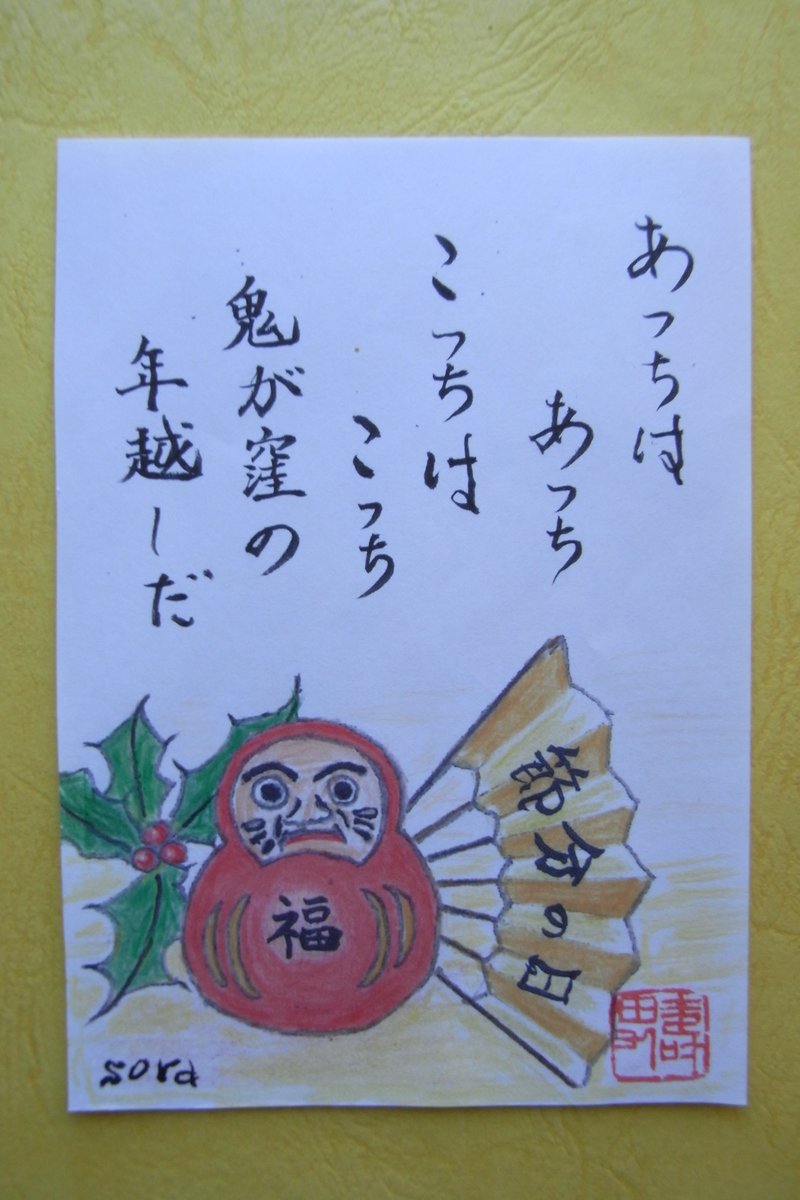 あっちは
あっち
こっちは
こっち
鬼が窪の
年越しだ
節分の日
福
sora